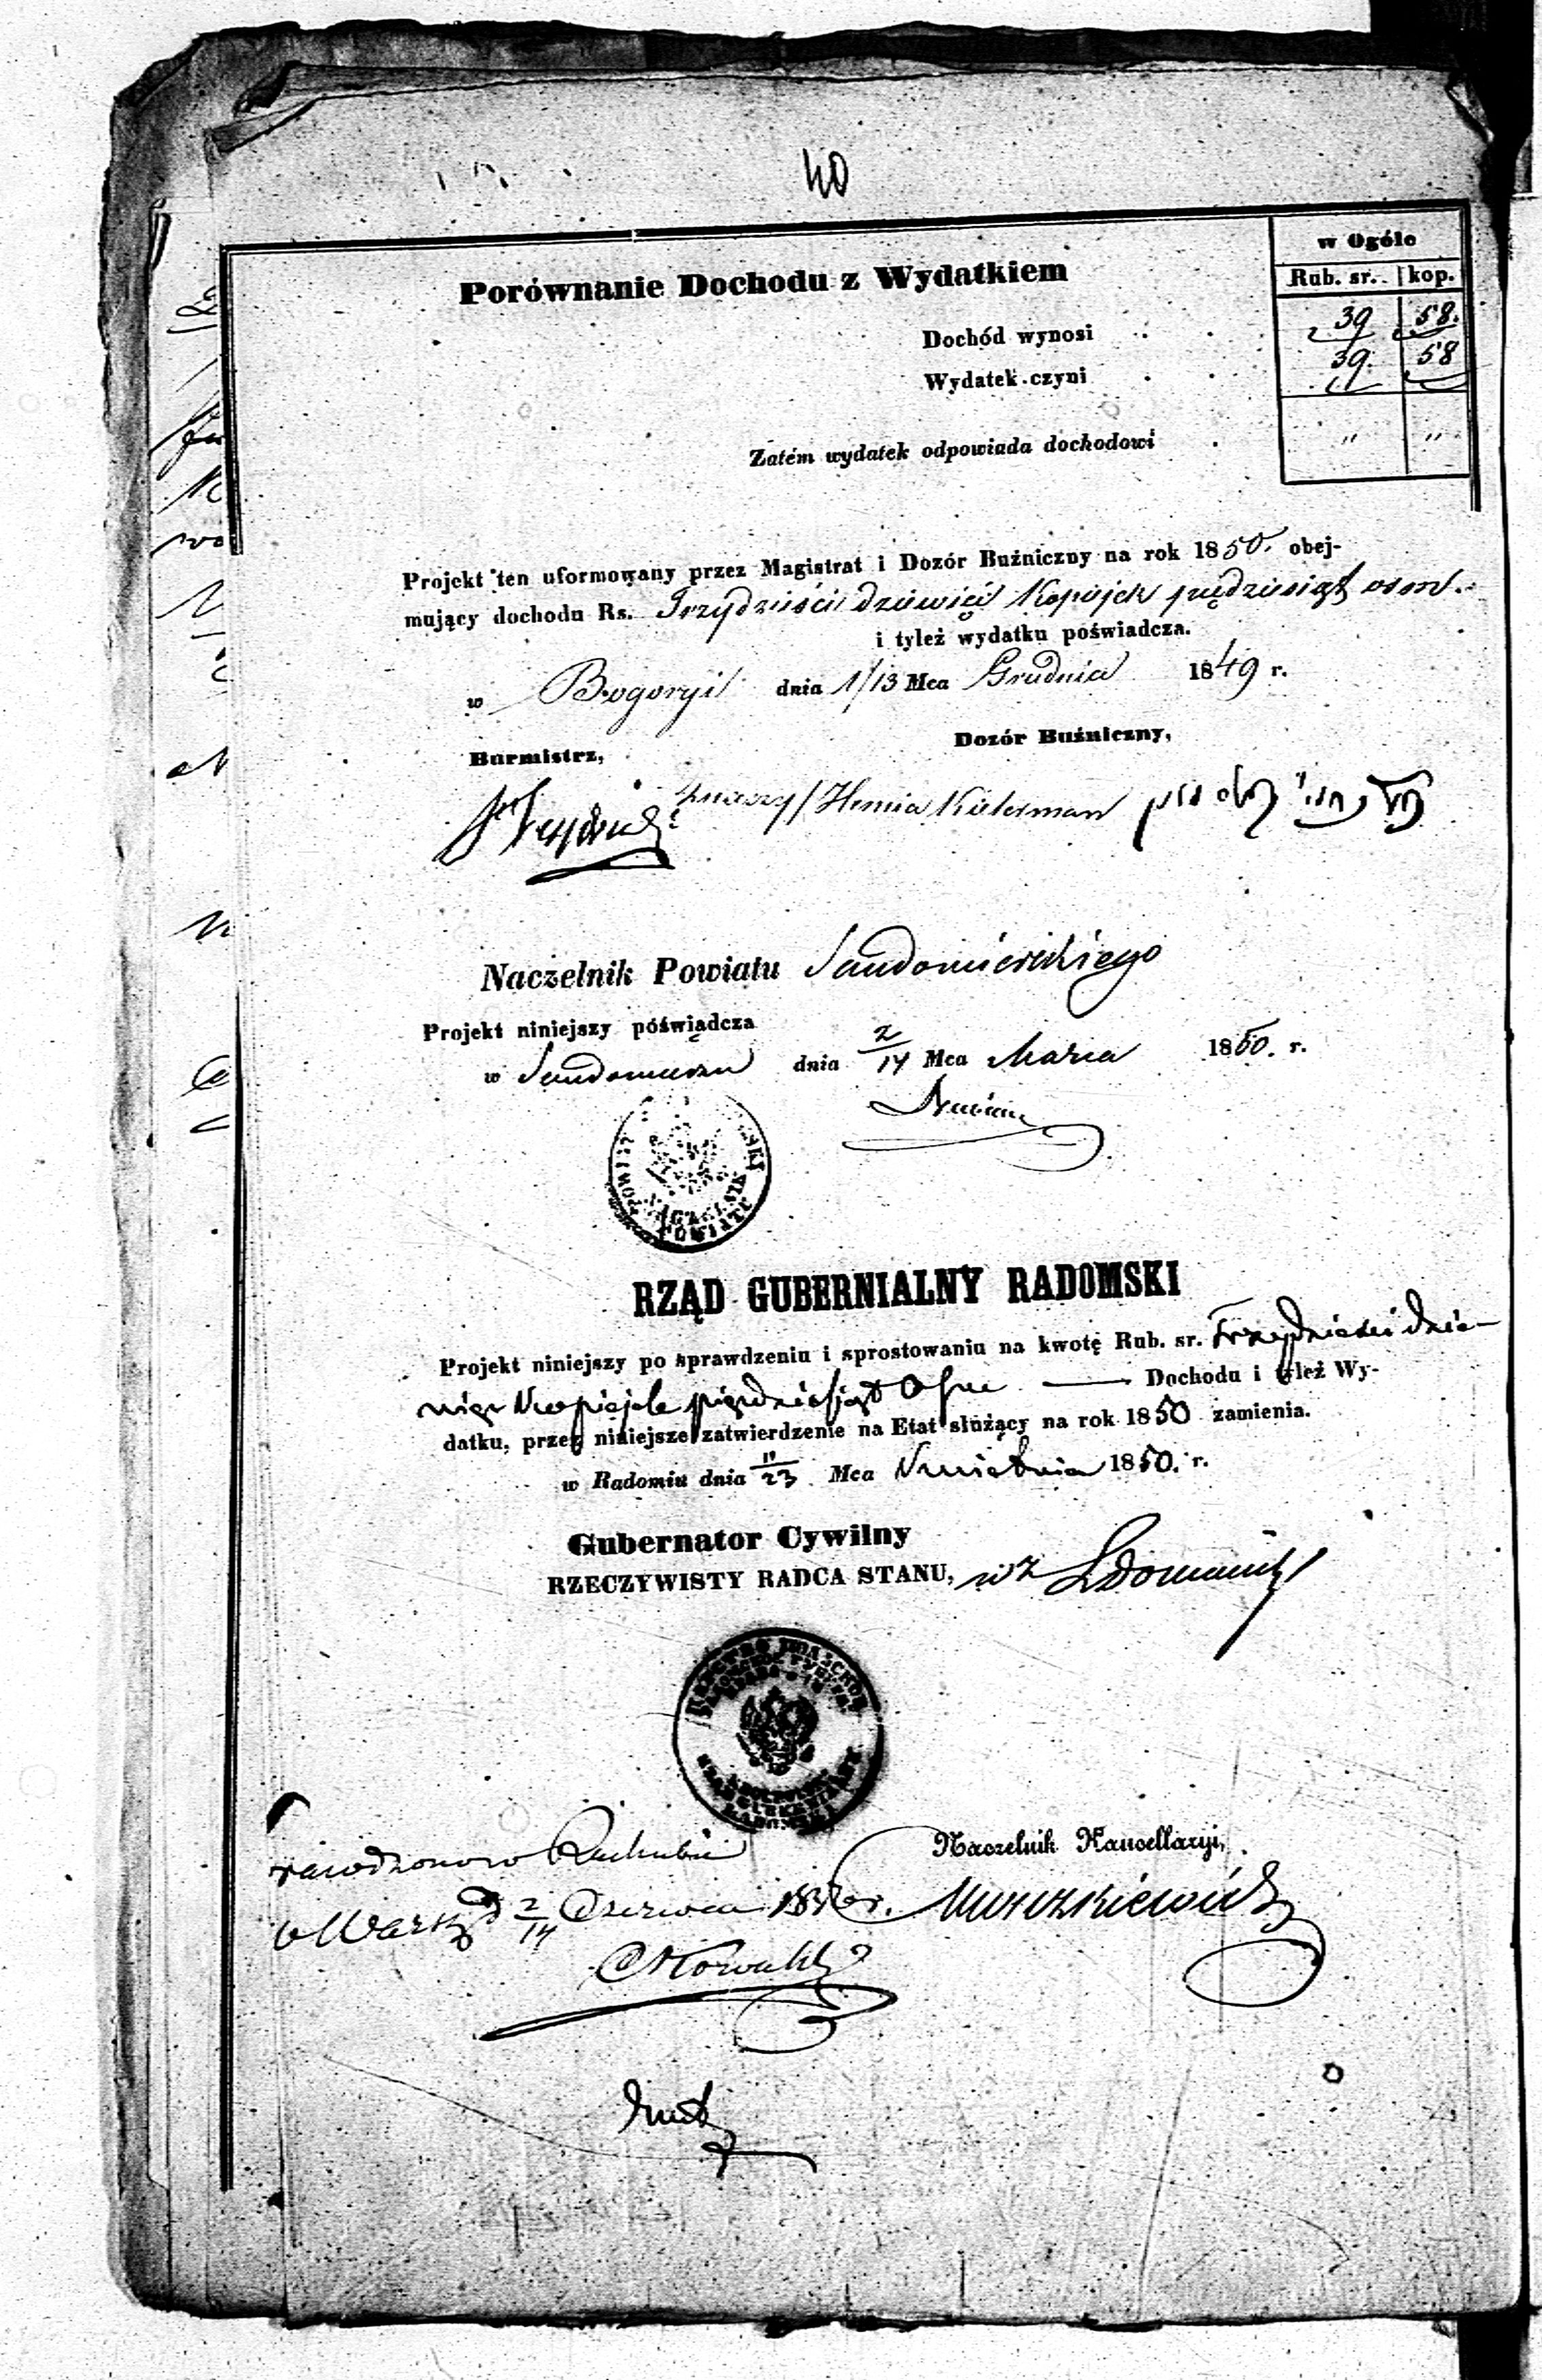 40
w Ogóle
Porównanie Dochodu z Wydatkiem
Rub. sr. kop.
Dochód wynosi 39. 58.
Wydatek czyni 39. 58
Zatém wydatek odpowiada dochodowi " "
Projekt ten uformowany przez Magistrat i Dozór Buźniczny na rok 1850. obej-
mujący dochodu Rs. Trzydzieści dziewięć Kopiejek pięćdziesiąt osm.
i tyleż wydatku poświadcza.
w Bogoryi dnia 1/13 Mca Grudnia 1849 r.
Burmistrz,
Dozór Buźniczny,
Naczelnik Powiatu Sandomierskiego
Projekt niniejszy poświadcza
w Sandomierzu dnia 2/14 Mca Marca 1850. r.
RZĄD GUBERNIALNY RADOMSKI
Projekt niniejszy po sprawdzeniu i sprostowaniu na kwotę Rub. sr. Trzydzieści dzie-
więć Kopiejek pięćdziesiąt Osm — Dochodu i tyleż Wy-
datku, przez niniejsze zatwierdzenie na Etat służący na rok 1850 zamienia.
w Radomiu dnia 11/23 Mca Kwietnia 1850. r.
Gubernator Cywilny
RZECZYWISTY RADCA STANU, wz
Naczelnik Kancellaryi,
2/14 Czerwca